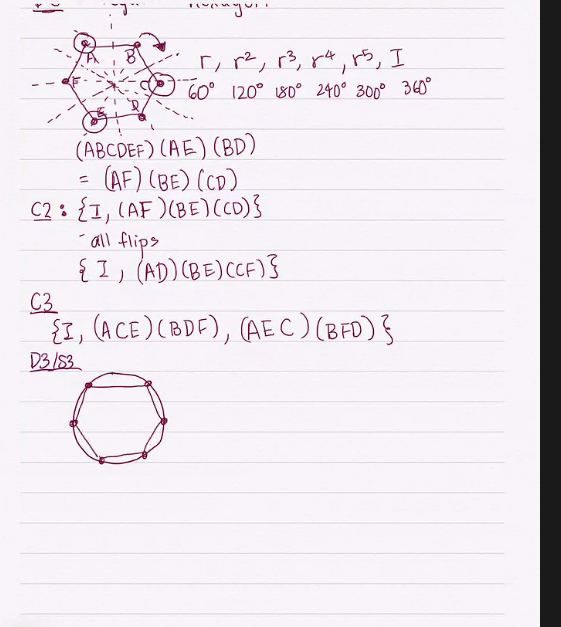 hexagon
A B
r, r², r³, r⁴, r⁵, I
F C
60° 120° 180° 240° 300° 360°
E D
(ABCDEF)(AE)(BD)
= (AF)(BE)(CD)
C2: {I, (AF)(BE)(CD)}
- all flips
{I, (AD)(BE)(CF)}
C3
{I, (ACE)(BDF), (AEC)(BFD)}
D3/S3